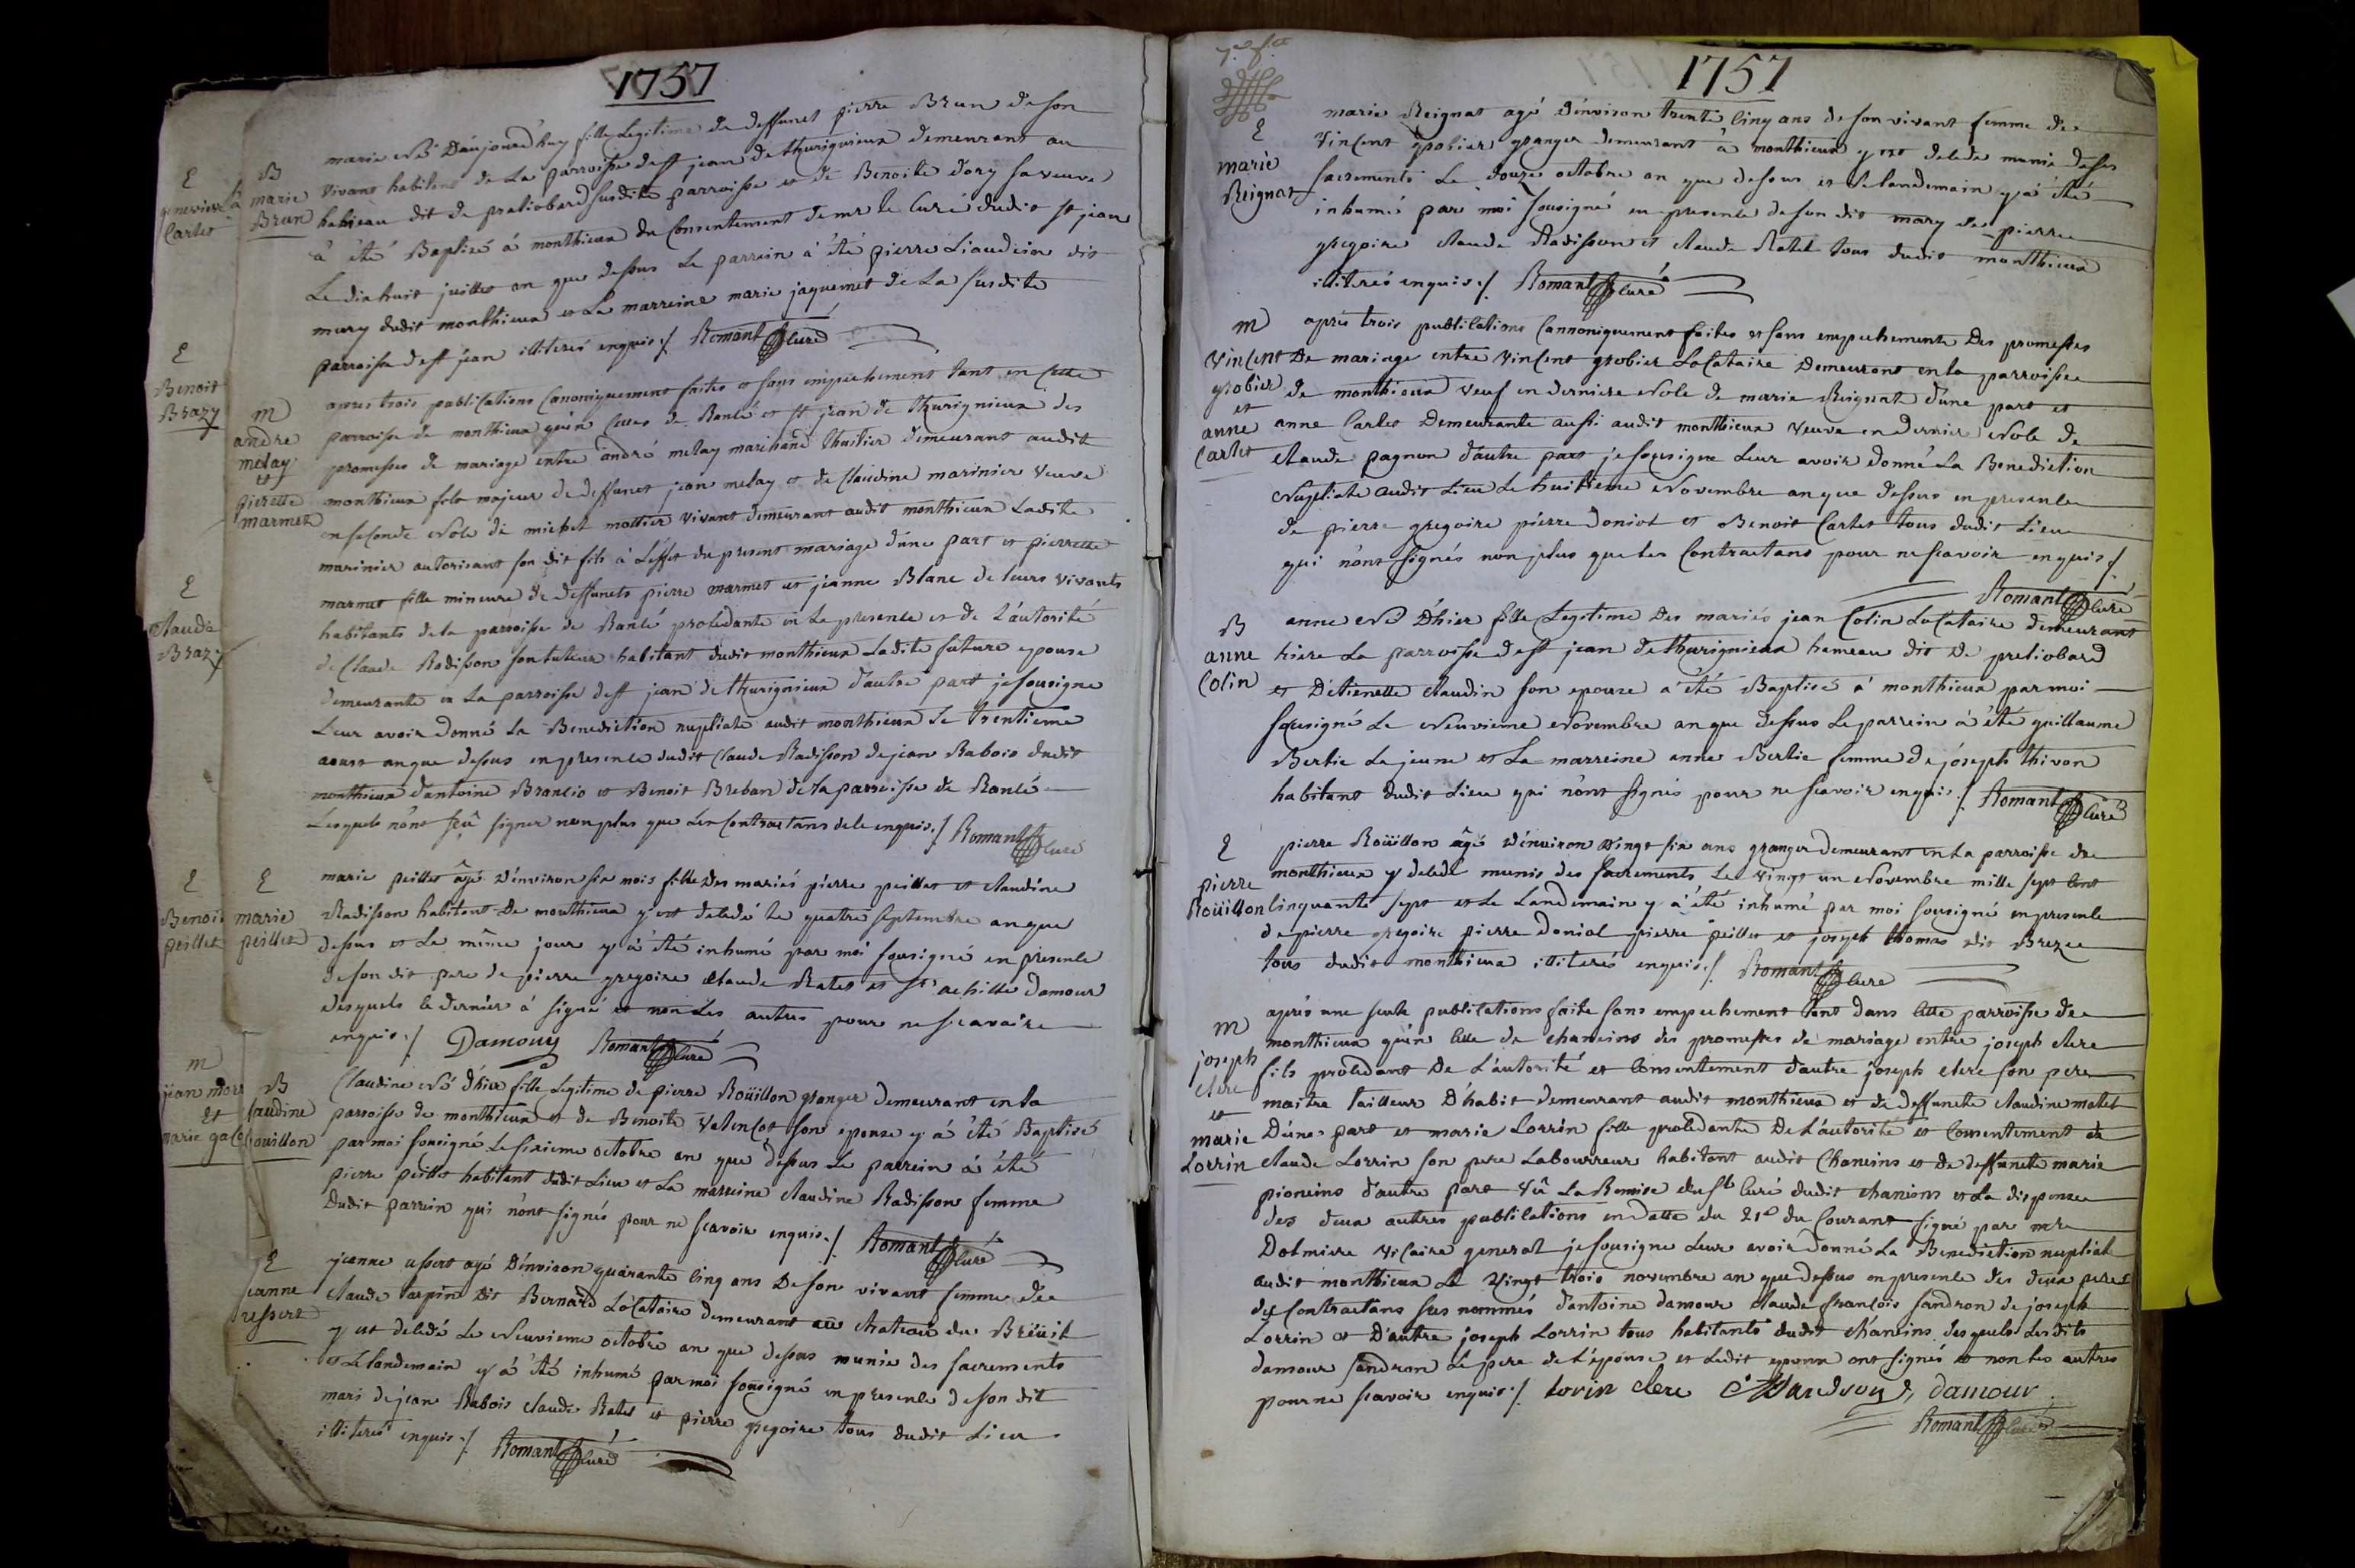 1757
B
marie
Brun
marie Née Daujourd'huy fille Legitime de deffunct pierre Brun de son
vivant habitant de La parroisse de st jean de thurignieux demeurant au
hameau dit de pretiobard susdite parroisse et de Benoite Dory sa veuve
à été Baptisé à monthieux du Consentement de mr le Curé dudit st jean
Le dixhuit juillet an que dessus Le parrein à été pierre Liaudein dit
mury dudit monthieux et La marreine marie jaquemet de La susdite
parroisse de st jean illiterés enquis ./. Romant Curé
m
andre
melay
et
pierette
marmet
apres trois publications Canoniquement faites et sans empechement tant en Cette
parroisse de monthieux qu'en Celles de Ranlé et st jean de thurignieux des
promesses de mariage entre andré melay marchand thuilier demeurant audit
monthieux fils majeur de deffunct jean melay et de Claudine marinier veuve
en seconde Nole de michel mottier vivant demeurant audit monthieux Ladite
marinier autorisant son dit fils à L'effet du present mariage d'une part et pierrette
marmet fille mineure de deffuncts pierre marmet et jeanne Blanc de leurs vivants
habitants de la parroisse de Ranlé procedante en La presence et de L'autorité
de Claude Radisson son tuteur habitant dudit monthieux Ladite future epouse
demeurante en La parroisse de st jean de thurignieux d'autre part je sousigne
Leur avoir donné La Benediction nuptiale audit monthieux Le trentieme
aoust an que dessus en presence dudit Claude Radisson de jean Rabois dudit
monthieux d'antoine Brancio et Benoit Breban de la parroisse de Ranlé
Lesquels n'ont sçû signer non plus que Les Contractans de le enquis ./. Romant Curé
E
marie
peillet
marie peillet âgé d'environ six mois fille des mariés pierre peillet et claudine
Radisson habitant de monthieux y est decedé le quatre septembre an que
dessus et Le même jour y à été inhumé par moi sousigné en presence
de son dit pere de pierre gregoire claude Ratet et sr achille Damour
desquels le dernier à signé et non Les autres pour ne scavoire
enquis ./. Damour Romant Curé
B
Claudine
Rouillon
Claudine Né d'hier fille Legitime de pierre Roüillon granger demeurant en la
parroisse de monthieux et de Benoite Valençot son epouse y à été Baptisé
par moi sousigné Le sixieme octobre an que dessus Le parrein à été
pierre peillet habitant dudit Lieu et La marreine claudine Radisson femme
Dudit parrein qui n'ont signés pour ne scavoir enquis ./. Romant Curé
E
jeanne
ressert
jeanne ussert agé D'environ quarante cinq ans De son vivant femme de
claude Carpin dit Bernard Locataire demeurant au chateau du Breüil
y est decedé Le Neuvieme octobre an que dessus munie des sacrements
et Le landemain y à été inhumé par moi sousigné en presence de son dit
mari de jean Rabois claude Ratet et pierre gregoire tous dudit Lieu
illiterés enquis ./. Romant Curé
E
genevieve
Cartet
E
Benoit
Brazy
E
Claude
Brazy
E
Benoit
peillet
m
jean
et
marie
1757
E
marie
Reignat
marie Reignat agé d'environ trente cinq ans de son vivant femme de
Vincent grobier granger demeurant à monthieux y est decedé munie de ses
sacrements Le douze octobre an que dessus et Le landemain y à été
inhumé par moi sousigné en presence de son dit mary de pierre
gregoire claude Radisson et claude Ratet tous dudit monthieux
illiterés enquis ./. Romant Curé
m
Vincent
grobier
et
anne
Cartet
apres trois publications Cannoniquement faites et sans empechements Des promesses
De mariage entre Vincent grobier Locataire Demeurant en la parroisse
de monthieux veuf en derniere Nole de marie Reignat d'une part et
anne Cartet Demeurante aussi audit monthieux veuve en dernier Nole de
claude pagnon d'autre part je sousigne Leur avoir donné La Benediction
Nuptiale audit Lieu Le huitieme Novembre an que dessus en presence
de pierre gregoire pierre Doniol et Benoit Cartet tous dudit Lieu
qui n'ont signés non plus que Les Contractans pour ne scavoir enquis ./.
Romant Curé
B
anne
Colin
anne Né D'hier fille Legitime des mariés jean Colin Locataire demeurant
riere La parroisse de st jean de thurignieux hameau dit De pretiobard
et D'etienette claudin son epouse a été Baptisé à monthieux par moi
sousigné Le Neuvieme Novembre an que dessus Le parrein à été guillaume
Bertie Le jeune et La marreine anne Bertie femme de joseph thivon
habitant dudit Lieu qui n'ont signés pour ne scavoir enquis ./. Romant Curé
E
pierre
Roüillon
pierre Roüillon âgé d'environ vingt six ans granger demeurant en La parroisse de
monthieux y decedé munis des sacrements Le vingt un Novembre mille sept Cent
Cinquante sept et Le Landemain y à été inhumé par moi sousigné en presence
de pierre gregoire pierre Doniol pierre peillet et joseph thomas dit Breze
tous dudit monthieux illiterés enquis ./. Romant Curé
m
joseph
clere
et
marie
Lorrin
après une seule publications faite sans empechement tant dans Cette parroisse de
monthieux qu'en Celle de chaneins des promesses de mariage entre joseph clere
fils procedant De L'autorité et Consentement d'autre joseph clere son pere
maitre tailleur D'habit demeurant audit monthieux et de deffuncte claudine matet
D'une part et marie Lorrin fille procedante De L'autorité et Consentement de
claude Lorrin son pere Labourreur habitant audit Chaneins et De deffuncte marie
pioneins d'autre part Vû La Remise du sr Curé dudit chaneins et La dispense
des deux autres publications en datte du 21e du Courant signé par mre
Dolmiere vicaire general je sousigne Leur avoir donné La Benediction nuptiale
audit monthieux Le vingt trois novembre an que dessus en presence des deux peres
des Contractans sus nommés d'antoine damour claude françois sandron de joseph
Lorrin et D'autre joseph Lorrin tous habitants dudit chaneins desquels Lesdits
damour sandron Le pere de L'epouse et Ledit epoux ont signés et non les autres
pour ne scavoir enquis ./. Lorin clere damour
Romant Curé